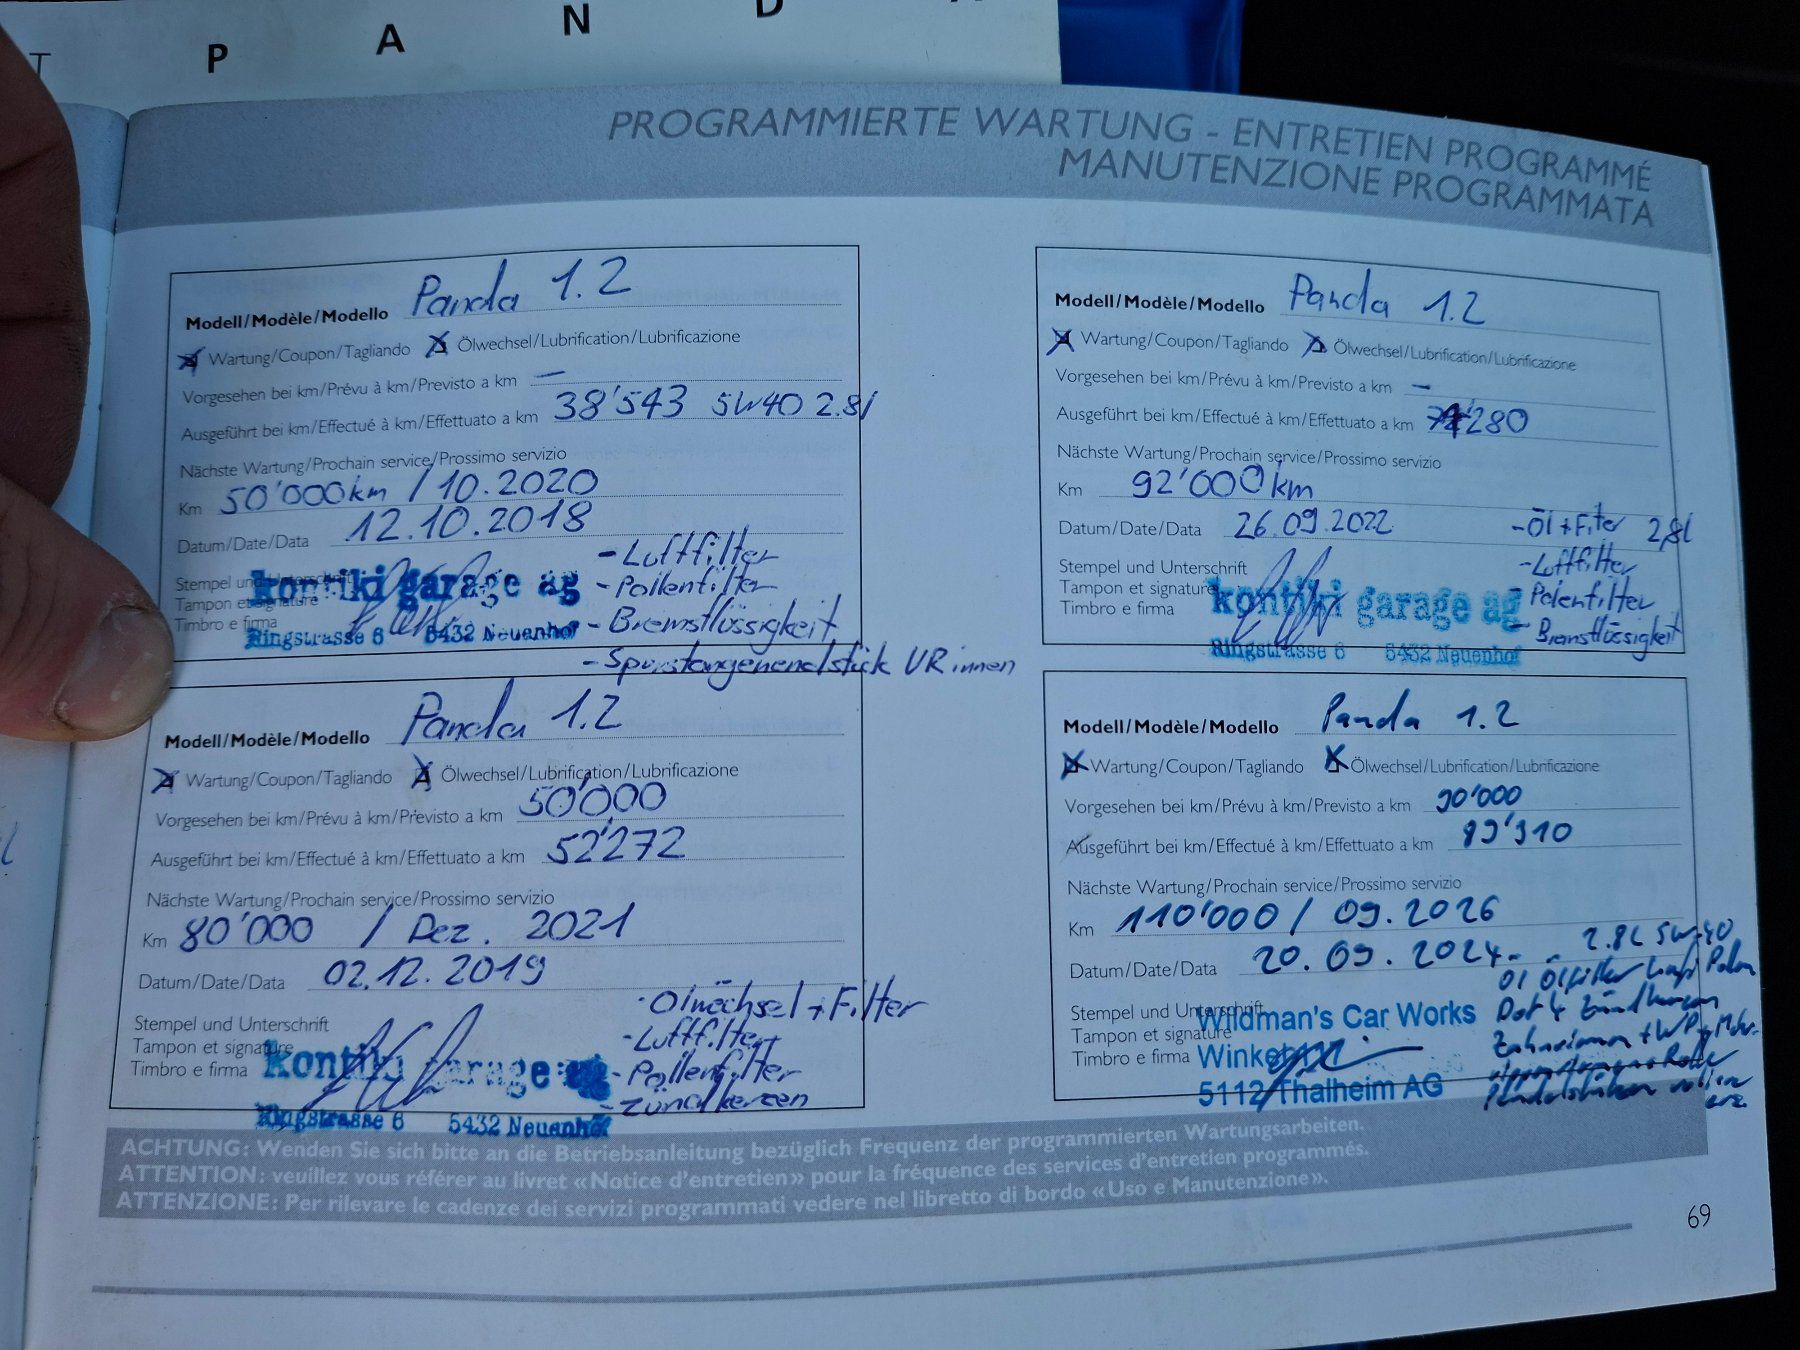 T P A N D
PROGRAMMIERTE WARTUNG - ENTRETIEN PROGRAMMÉ
MANUTENZIONE PROGRAMMATA
Modell/Modèle/Modello Panda 1.2
Wartung/Coupon/Tagliando Ölwechsel/Lubrification/Lubrificazione
Vorgesehen bei km/Prévu à km/Previsto a km –
Ausgeführt bei km/Effectué à km/Effettuato a km 38'543 5W40 2.8l
Nächste Wartung/Prochain service/Prossimo servizio
Km 50'000km / 10.2020
Datum/Date/Data 12.10.2018
- Luftfilter
Stempel und Unterschrift
kontiki garage ag
- Pollenfilter
Tampon et signature
Timbro e firma
Ringstrasse 6 5432 Neuenhof
- Bremsflüssigkeit
- Spurstangenendstück VR innen
Modell/Modèle/Modello Panda 1.2
Wartung/Coupon/Tagliando Ölwechsel/Lubrification/Lubrificazione
Vorgesehen bei km/Prévu à km/Previsto a km 50'000
Ausgeführt bei km/Effectué à km/Effettuato a km 52'272
Nächste Wartung/Prochain service/Prossimo servizio
Km 80'000 / Dez. 2021
Datum/Date/Data 02.12.2019
- Ölwechsel + Filter
Stempel und Unterschrift
- Luftfilter
Tampon et signature
kontiki garage ag
Timbro e firma
- Pollenfilter
- Zündkerzen
Ringstrasse 6 5432 Neuenhof
Modell/Modèle/Modello Panda 1.2
Wartung/Coupon/Tagliando Ölwechsel/Lubrification/Lubrificazione
Vorgesehen bei km/Prévu à km/Previsto a km –
Ausgeführt bei km/Effectué à km/Effettuato a km 280
Nächste Wartung/Prochain service/Prossimo servizio
Km 92'000km
Datum/Date/Data 26.09.2022
- Öl + Filter 2,8l
Stempel und Unterschrift
- Luftfilter
Tampon et signature
kontiki garage ag
- Polenfilter
Timbro e firma
- Bremsflüssigkeit
Ringstrasse 6 5432 Neuenhof
Modell/Modèle/Modello Panda 1.2
Wartung/Coupon/Tagliando Ölwechsel/Lubrification/Lubrificazione
Vorgesehen bei km/Prévu à km/Previsto a km 90'000
Ausgeführt bei km/Effectué à km/Effettuato a km 89'910
Nächste Wartung/Prochain service/Prossimo servizio
Km 110'000 / 09.2026
Datum/Date/Data 20.09.2024
2.8L 5W-40
Öl Ölfilter Luft Pollen
Stempel und Unterschrift
Wildman's Car Works
Dot 4
Tampon et signature
Zahnriemen + WP
Timbro e firma
5112 Thalheim AG
ACHTUNG: Wenden Sie sich bitte an die Betriebsanleitung bezüglich Frequenz der programmierten Wartungsarbeiten.
ATTENTION: veuillez vous référer au livret «Notice d'entretien» pour la fréquence des services d'entretien programmés.
ATTENZIONE: Per rilevare le cadenze dei servizi programmati vedere nel libretto di bordo «Uso e Manutenzione».
69